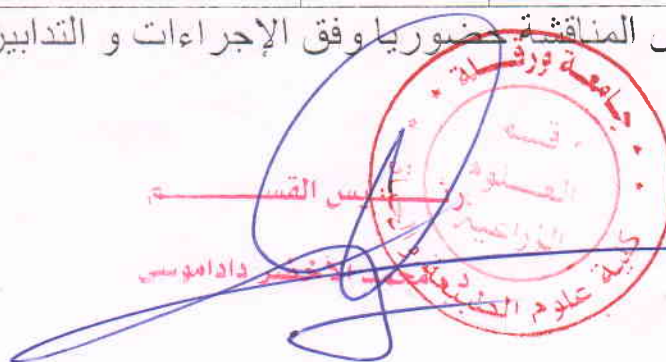 المناقشة حضوريا وفق الإجراءات و التدابير
جامعة ورقلة
قسم
العلوم
الزراعية
كلية علوم الطبيعة
رئيس القسم
محمد الأخضر داداموسى